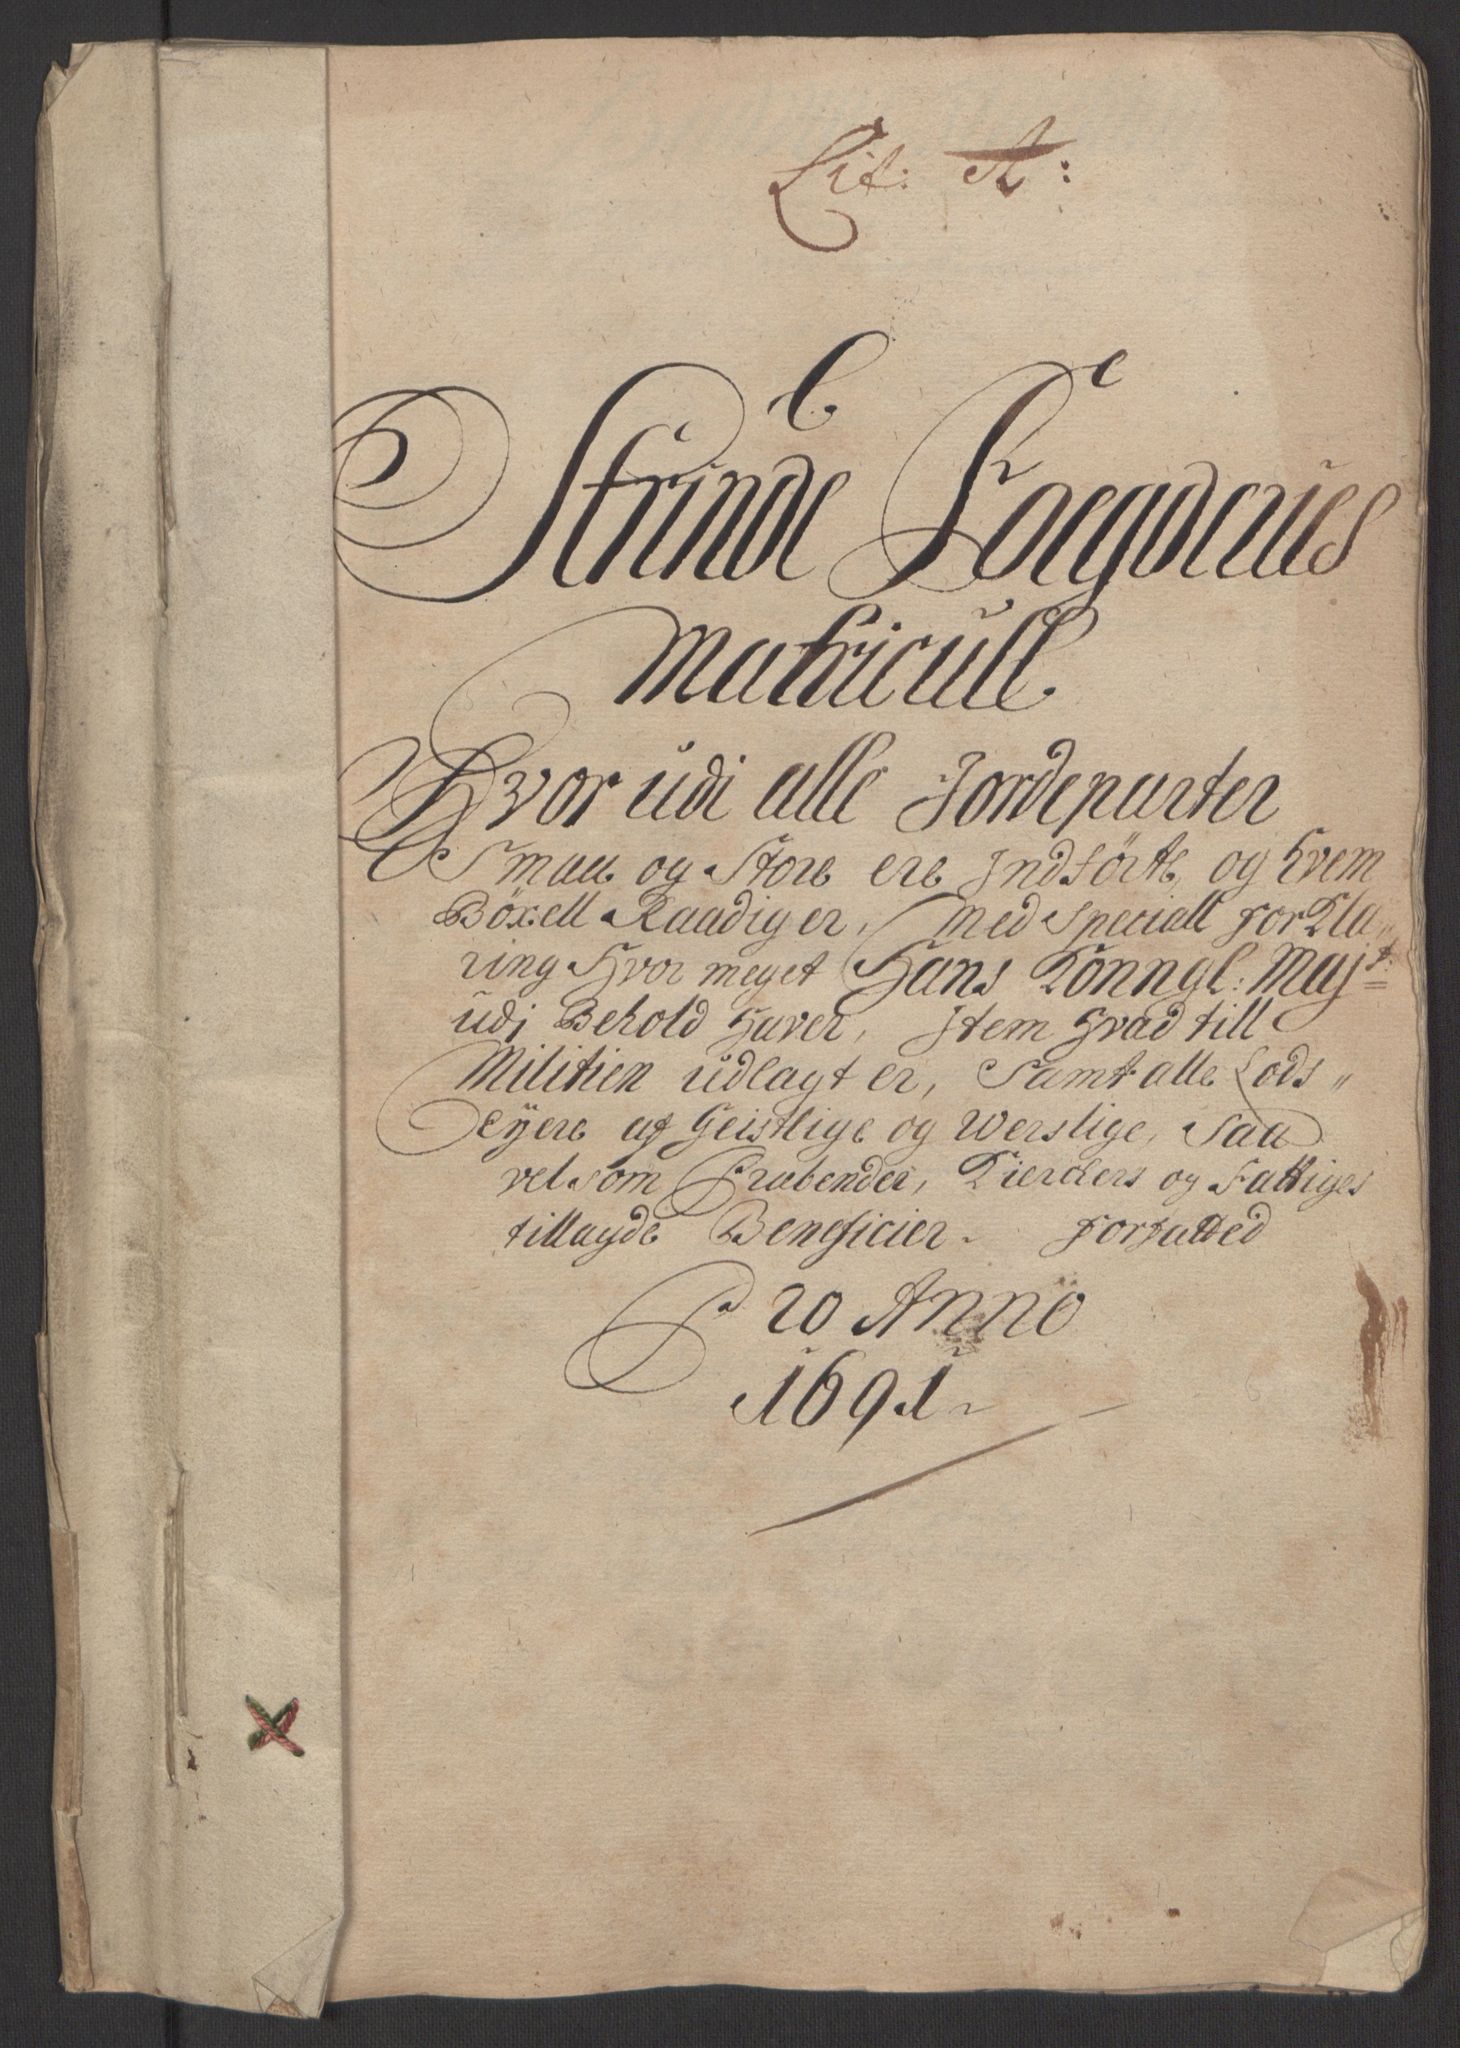 Lit: A:
Strinde Foegderies
Matricull
Hvor udi alle Jordeparter
Smaa og Store ere Indförte, og hvem
Böxell Raadig er, Med Speciall forkla„
ring Hvor meget Hans Konngl: Majt:
udj Behold haver, Item hvad till
Militien udlagt er, Samt alle Lods„
Eÿere af Geistlige og Werslige, Saa
vel som Præbender, Kierckers og Fattiges
tillagde Beneficier. forfatted
Pro Anno
1691